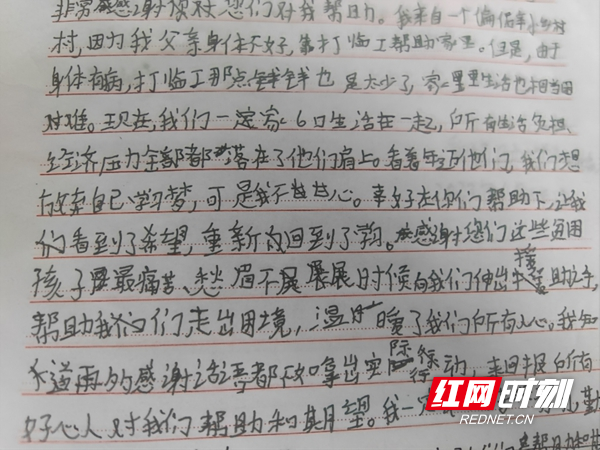 非常感谢 对您们对我帮助。我来自一个偏僻
村,因为我父亲身体不好,靠打临工帮助家里。但是,由于
身体有病,打临工那点钱 也是太少了,家里 生活也相当困
难。现在,我们一定家6口生活在一起,所有生活负担、
经济压力全部都落在了他们肩上。看着年迈他们,我们想
放弃自己学习梦,可是我不甘心。幸好在你们帮助下,让我
们看到了希望,重新的回到了学。感谢您们这些困
孩子最痛苦、愁眉不展 时候向我们伸出援助之手,
帮助我们们走出困境,温暖了我们所有人心,我知
道 的感谢话语都 拿出实际行动,来回报所有
好心人对我们帮助和期望。我一
红网时刻
REDNET.CN